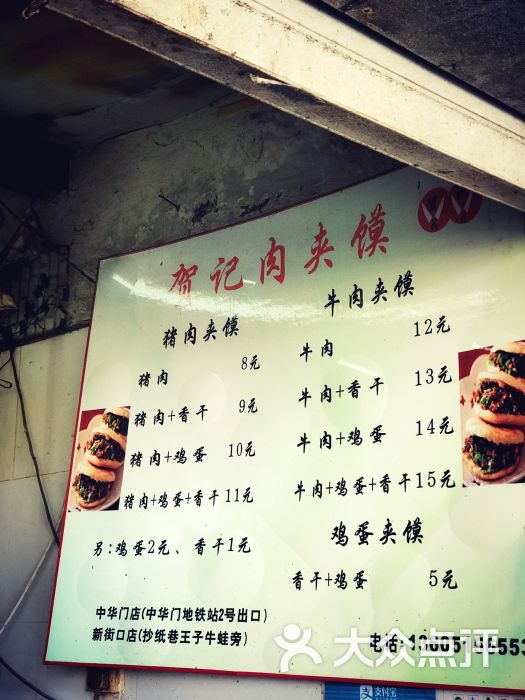 贺记肉夹馍
猪肉夹馍
猪肉 8元
猪肉+香干 9元
猪肉+鸡蛋 10元
猪肉+鸡蛋+香干 11元
另:鸡蛋2元、香干1元
牛肉夹馍
牛肉 12元
牛肉+香干 13元
牛肉+鸡蛋 14元
牛肉+鸡蛋+香干 15元
鸡蛋夹馍
香干+鸡蛋 5元
中华门店(中华门地铁站2号出口)
新街口店(抄纸巷王子牛蛙旁)
电话:
大众点评
支付宝